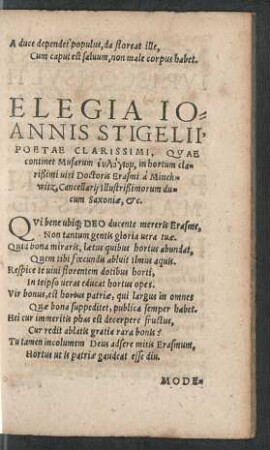 A duce dependet populus, da floreat ille,
Cum caput est saluum, non male corpus habet.
ELEGIA IO=
ANNIS STIGELII
POETAE CLARISSIMI, QVAE
continet Musarum ἐυλογίαν, in hortum cla-
rißimi uiri Doctoris Erasmi à Minck-
witz, Cancellarij illustrißimorum du-
cum Saxoniæ, &c.
QVi bene ubiq; DEO ducente mereris Erasme,
Non tantum gentis gloria uera tuæ.
Quid bona miraris, lætus quibus hortus abundat,
Quem tibi fœcundus abluit Ilmus aquis.
Respice te uiui florentem dotibus horti,
In teipso ueras educat hortus opes.
Vir bonus, est hortus patriæ, qui largus in omnes
Quæ bona suppeditet, publica semper habet.
Hei cur immeritis phas est decerpere fructus,
Cur redit ablatis gratia rara bonis?
Tu tamen incolumem Deus adsere mitis Erasmum,
Hortus ut is patriæ gaudeat esse diu.
MODE=